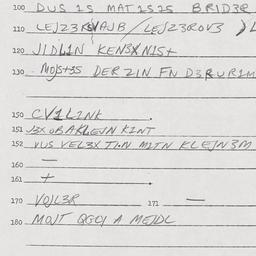 100 DUS 1S MAT1S1S BRID3R
110 LEJ23R
120 JIDL1N KENSXN1S+
130 MOJS+3S DER ZIN FN D3RUR1M
150 CV1L1NK .
151 J3X OBAKLEJN K1NT
152 VUS VEL3X T1N M1TN KLEJN3M
160 —
161 + .
170 VOJL3R 171 —
180 MOJT QGOJ A MEJDL